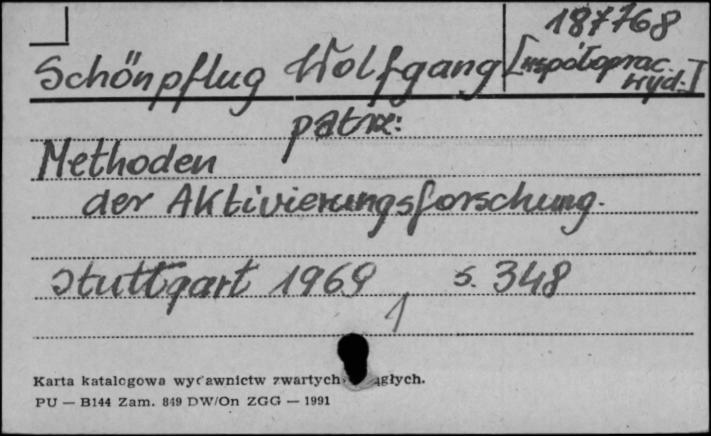 187768
Schönpflug Wolfgang [współoprac.
wyd.]
patrz:
Methoden
der Aktivierungsforschung.
Stuttgart 1969 s. 348
1
Karta katalogowa wydawnictw zwartych i ciągłych.
PU — B144 Zam. 849 DW/On ZGG — 1991